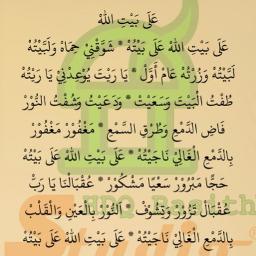 عَلَى بَيْتِ اللهْ
عَلَى بَيْتِ اللهْ عَلَى بَيْتُهْ * شَوَّقْنِيْ حِمَاهْ وَلَبَّيْتُهْ
لَبَّيْتُهْ وَزُرْتُهْ عَامْ أَوَّلْ * يَا رَيْتْ يُوْعِدْنِيْ يَا رَيْتُهْ
طُفْتُ الْبَيْتَ وَسَعَيْتْ * وَدَعَيْتُ وَشُفْتُ النُّوْرْ
فَاضِ الدَّمْعِ وَطُرْقِ السَّمْعِ * مَغْفُوْرْ مَغْفُوْرْ
بِالدَّمْعِ الْغَالِيْ نَاجَيْتُهْ * عَلَى بَيْتِ اللهْ عَلَى بَيْتُهْ
حَجًّا مَبْرُوْرْ سَعْيًا مَشْكُوْرْ * عُقْبَالْنَا يَا رَبُّ
عُقْبَالْ نَزُوْرْ وَنَشُوْفْ * النُّوْرْ بِالْعَيْنِ وَالْقَلْبْ
بِالدَّمْعِ الْغَالِيْ نَاجَيْتُهْ * عَلَى بَيْتِ اللهْ عَلَى بَيْتُهْ